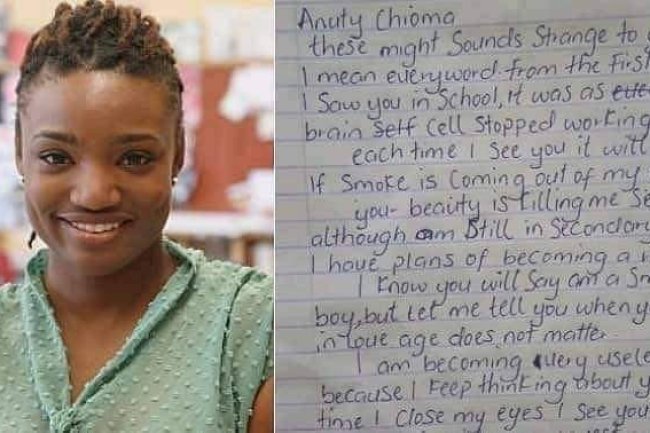 Anuty Chioma
these might Sounds Strange to
I mean everyword from the first
I Saw you in School, it was as
brain self Cell Stopped working
each time I See you it will
If Smoke is Coming out of my
you- beauty is killing me
although am Still in Secondary
I have plans of becoming a
I Know you will Say am a Sm
boy, but let me tell you when y
in love age does not matter
I am becoming very usele
because I Keep thinking about y
time I Close my eyes I See you